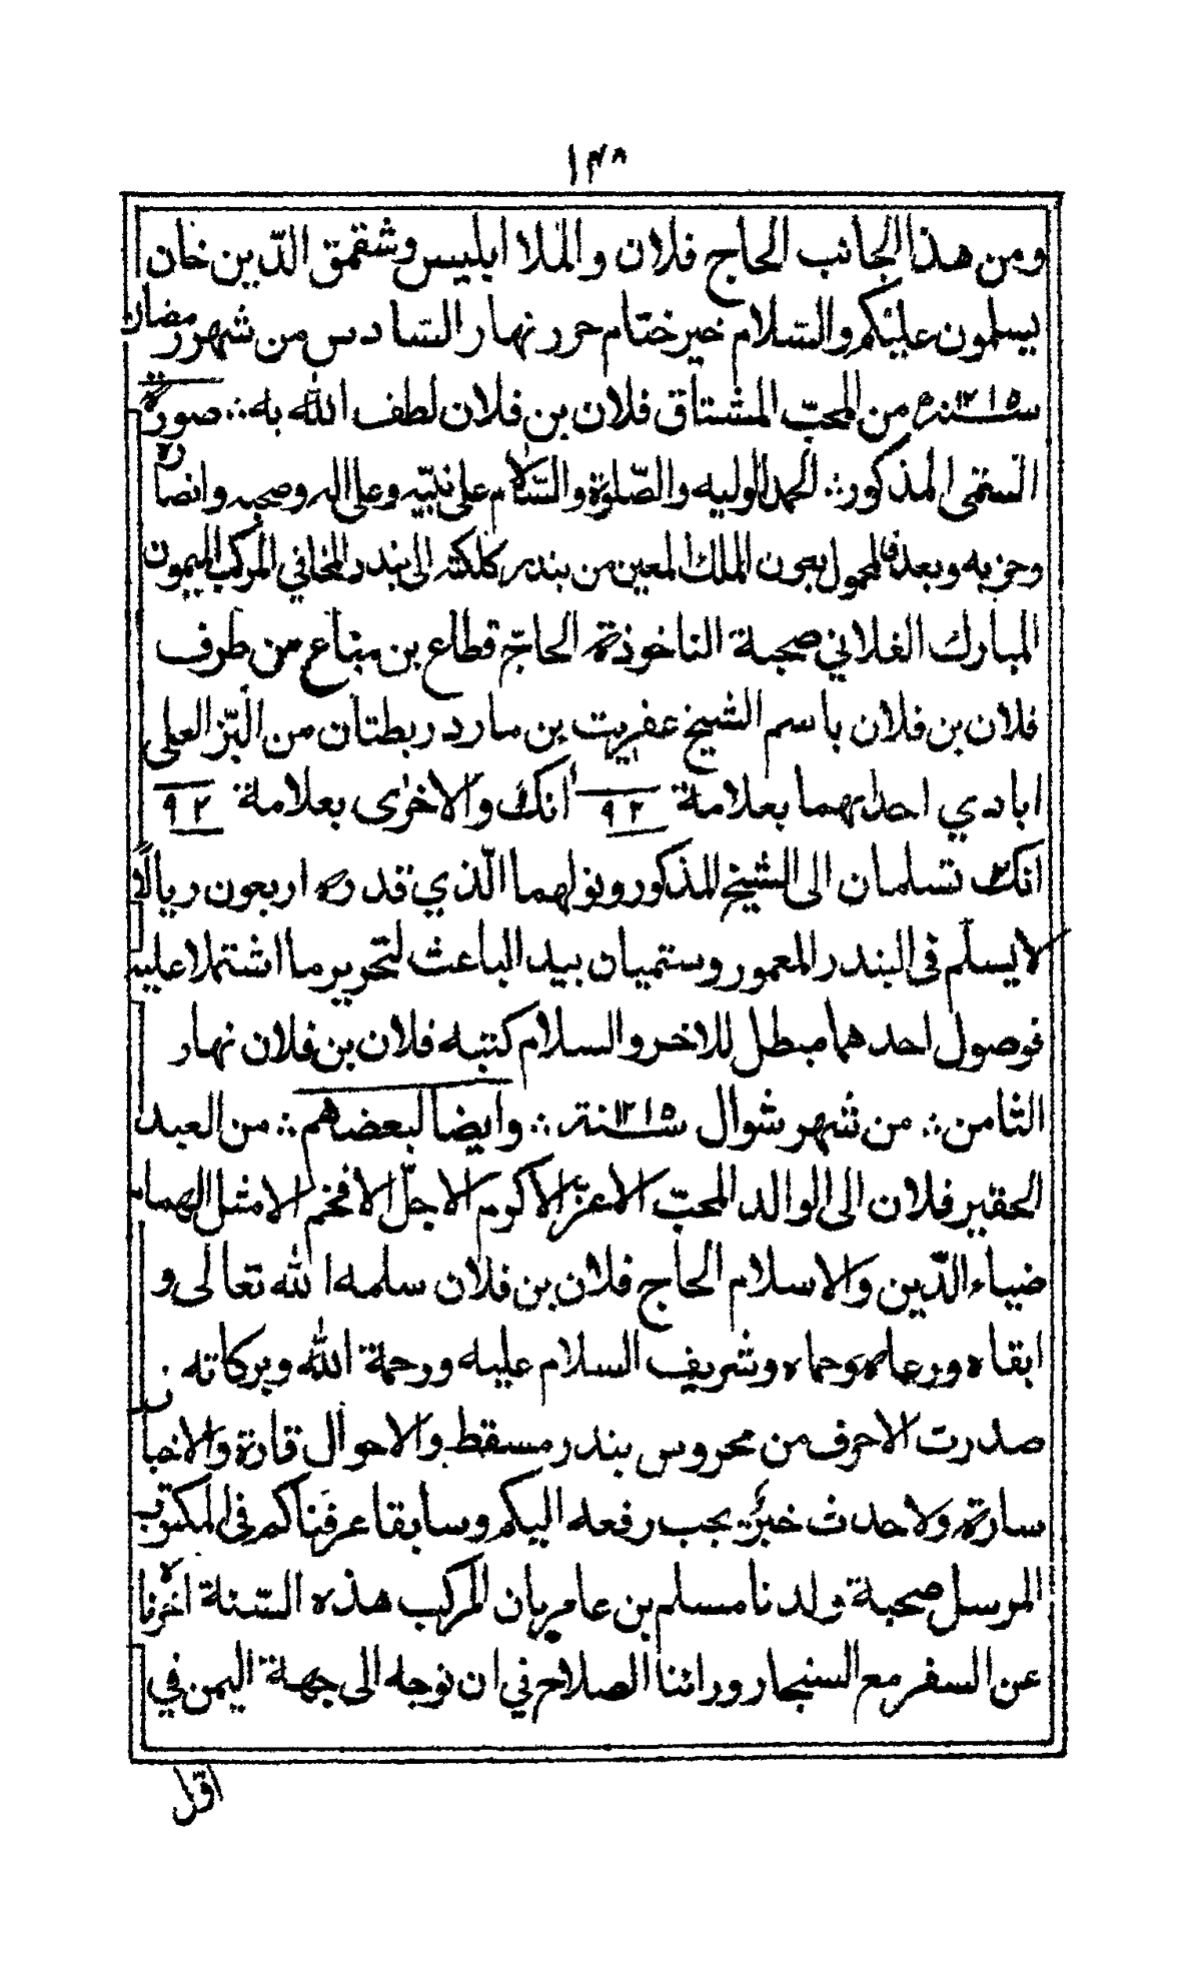 ١٣٨
ومن هذا الجانب الحاج فلان والملا ابليس وشقمق الدّين خان
يسلمون عليكم والسّلام خير ختام حرر نهار السّادس من شهر رمضان
سنة ١٢١٥ من المحبّ المشتاق فلان بن فلان لطف الله به ∴ صورة
الستمى المذكور ∴ الحمد لوليه والصّلوة والسّلام على نبيّه وعلى اله وصحبه وانصاره
وحزبه وبعد فالمحمول بعون الملك المعين من بندر كلكته الى بندر المخا في المركب الميمون
المبارك الفلاني صحبة الناخوذة الحاجّ قطاع بن مبتاع من طرف
فلان بن فلان باسم الشيخ عفريت بن مارد ربطتان من البزّ العلى
ابادي احداهما بعلامة ٩٢ انك والاخرى بعلامة ٩٢
انك تسلمان الى الشيخ المذكور ونولهما الّذي قدره اربعون ريالًا
لا يسلّم فى البندر المعمور وستميان بيد الباعث لتحرير ما اشتملا عليه
فوصول احدهما مبطل للاخر والسلام كتبه فلان بن فلان نهار
الثامن ∴ من شهر شوال سنة ١٢١٥ ∴ وايضا لبعضهم ∴ من العبد
الحقير فلان الى الوالد المحبّ الاعزّ الاكرم الاجلّ الافخم الامثل الهمام
ضياء الدّين والاسلام الحاج فلان بن فلان سلمه الله تعالى و
ابقاه ورعاه وحماه وشريف السلام عليه ورحمة الله وبركاته
صدرت الاحرف من محروس بندر مسقط والاحوال قارة والاخبار
سارة ولا حدث خبرٌ يجب رفعه اليكم وسابقا عرفناكم فى المكتوب
المرسل صحبة ولدنا مسلم بن عامر بان المركب هذه السّنة اخرناه
عن السفر مع السنجار ورائنا الصلاح في ان نوجه الى جهة اليمن في
اقل